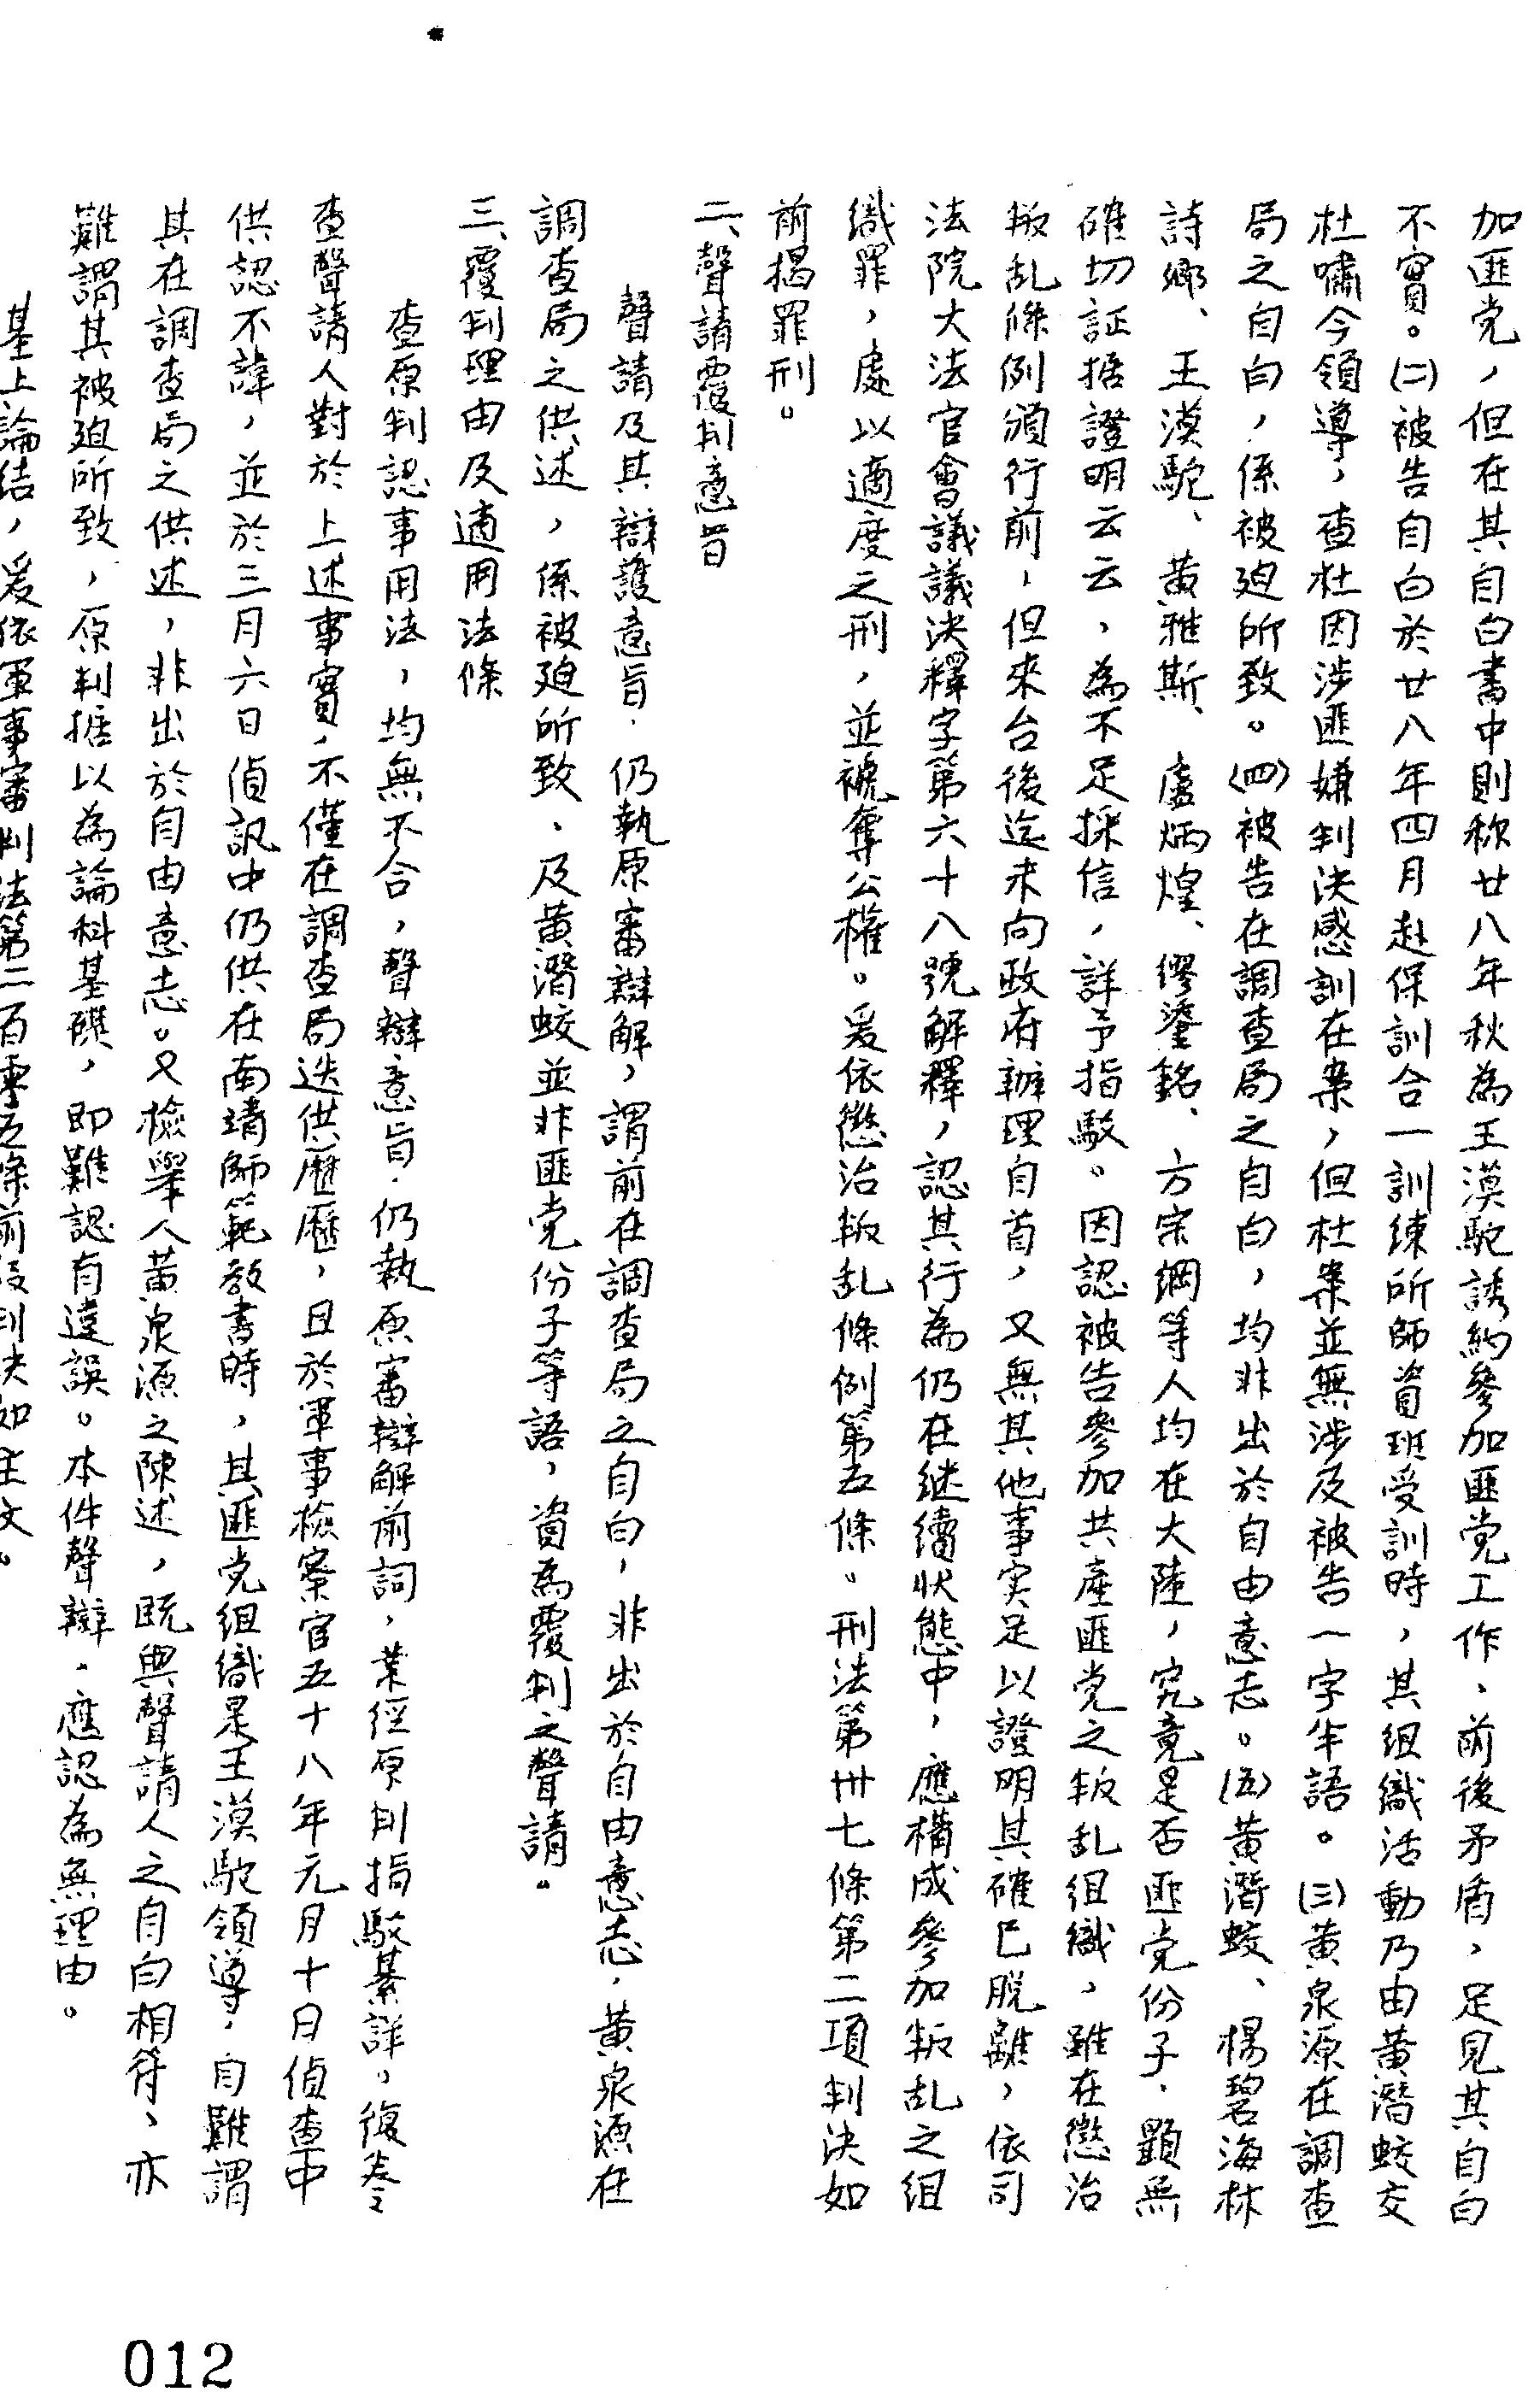 加匪党，但在其自白書中則称廿八年秋為王漠駝誘約參加匪党工作、前後矛盾，足見其自白
不實。㈡被告自白於廿八年四月赴保訓合一訓練所師資班受訓時，其組織活動乃由黃潛蛟交
杜嘯今領導，查杜因涉匪嫌判決感訓在案，但杜案並無涉及被告一字半語。㈢黃泉源在調查
局之自白，係被廹所致。㈣被告在調查局之自白，均非出於自由意志。㈤黃潛蛟、楊碧海林
詩鄉、王漠駝、黃雅斯、盧炳煌、繆鎏銘、方宗綱等人均在大陸，究竟是否匪党份子，顯無
確切証据證明云云，為不足採信，詳予指駁。因認被告參加共產匪党之叛乱組織，雖在懲治
叛乱條例頒行前，但來台後迄未向政府辦理自首，又無其他事实足以證明其確已脫離，依司
法院大法官會議議決釋字第六十八號解釋，認其行為仍在継續狀態中，應構成參加叛乱之組
織罪，處以適度之刑，並褫奪公權。爰依懲治叛乱條例第五條。刑法第卅七條第二項判決如
前揭罪刑。
二、聲請覆判意旨
聲請及其辯護意旨，仍執原審辯解，謂前在調查局之自白，非出於自由意志，黃泉源在
調查局之供述，係被廹所致，及黃潛蛟並非匪党份子等語，資為覆判之聲請。
三、覆判理由及適用法條
查原判認事用法，均無不合，聲辯意旨，仍執原審辯解前詞，業經原判指駁綦詳，復卷
查聲請人對於上述事實，不僅在調查局迭供歷歷，且於軍事檢察官五十八年元月十日偵查中
供認不諱，並於三月六日偵訊中仍供在南靖師範教書時，其匪党組織是王漠駝領導，自難謂
其在調查局之供述，非出於自由意志。又檢舉人黃泉源之陳述，既與聲請人之自白相符、亦
難謂其被廹所致，原判據以為論科基礎，即難認有違誤。本件聲辯，應認為無理由。
基上論結，爰依軍事審判法第二百零五條前段判決如主文。
012